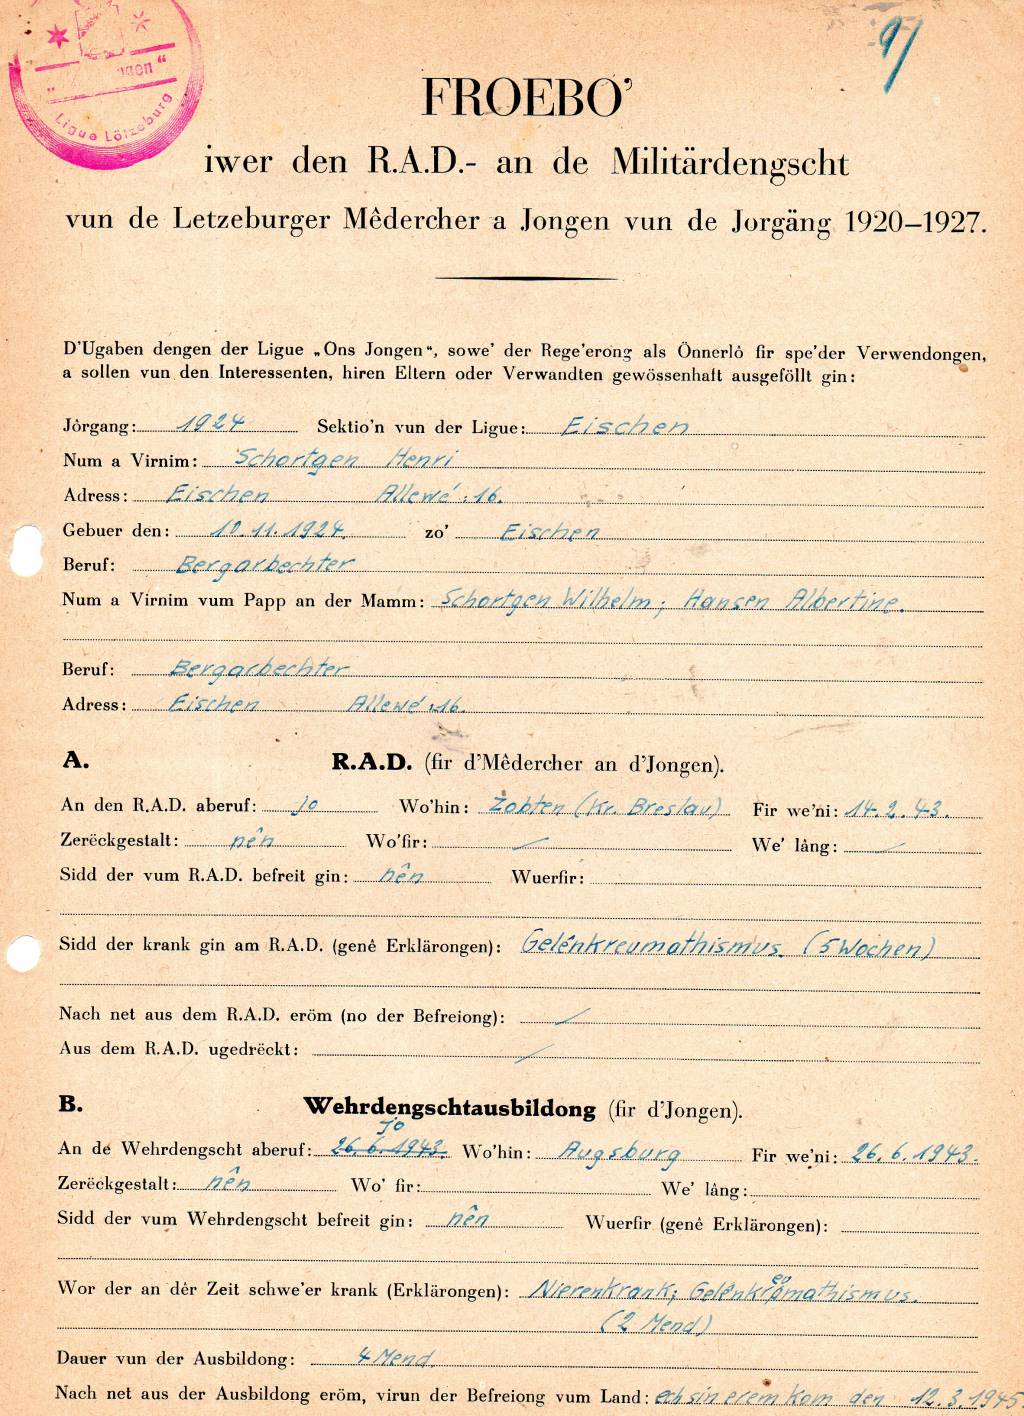 91
Ligue Lötzeburg
FROEBO'
iwer den R.A.D.- an de Militärdengscht
vun de Letzeburger Mêdercher a Jongen vun de Jorgäng 1920–1927.
D'Ugaben dengen der Ligue „Ons Jongen“, sowe' der Rege'erong als Önnerlô fir spe'der Verwendongen,
a sollen vun den Interessenten, hiren Eltern oder Verwandten gewössenhaft ausgeföllt gin:
Jôrgang: 1924 Sektio'n vun der Ligue: Eischen
Num a Virnim: Schortgen Henri
Adress: Eischen Allewé 16.
Gebuer den: 10.11.1924. zo' Eischen
Beruf: Bergarbechter
Num a Virnim vum Papp an der Mamm: Schortgen Wilhelm; Hansen Albertine.
Beruf: Bergarbechter
Adress: Eischen Allewé 16.
A. R.A.D. (fir d'Mêdercher an d'Jongen).
An den R.A.D. aberuf: jo Wo'hin: Zobten (Kr. Breslau) Fir we'ni: 14.2.43.
Zereckgestalt: nên Wo'fir: / We' lång: /
Sidd der vum R.A.D. befreit gin: nên Wuerfir:
Sidd der krank gin am R.A.D. (genê Erklärongen): Gelênkreumathismus. (5 Wochen)
Nach net aus dem R.A.D. eröm (no der Befreiong): /
Aus dem R.A.D. ugedréckt: /
B. Wehrdengschtausbildong (fir d'Jongen).
jo
An de Wehrdengscht aberuf: 26.6.1943. Wo'hin: Augsburg Fir we'ni: 26.6.1943.
Zereckgestalt: nên Wo' fir: We' lång:
Sidd der vum Wehrdengscht befreit gin: nên Wuerfir (genê Erklärongen):
Wor der an dêr Zeit schwe'er krank (Erklärongen): Nierenkrank; Gelênkreumathismus.
(2 Mend)
Dauer vun der Ausbildong: 4 Mend.
Nach net aus der Ausbildong eröm, virun der Befreiong vum Land: ech sin erem kom den 12.3.1945